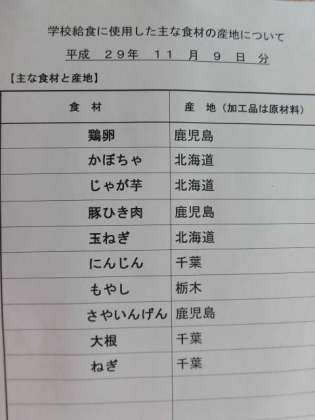 学校給食に使用した主な食材の産地について
平成 29年 11 月 9 日 分
【主な食材と産地】
食 材 産 地（加工品は原材料）
鶏卵 鹿児島
かぼちゃ 北海道
じゃが芋 北海道
豚ひき肉 鹿児島
玉ねぎ 北海道
にんじん 千葉
もやし 栃木
さやいんげん 鹿児島
大根 千葉
ねぎ 千葉